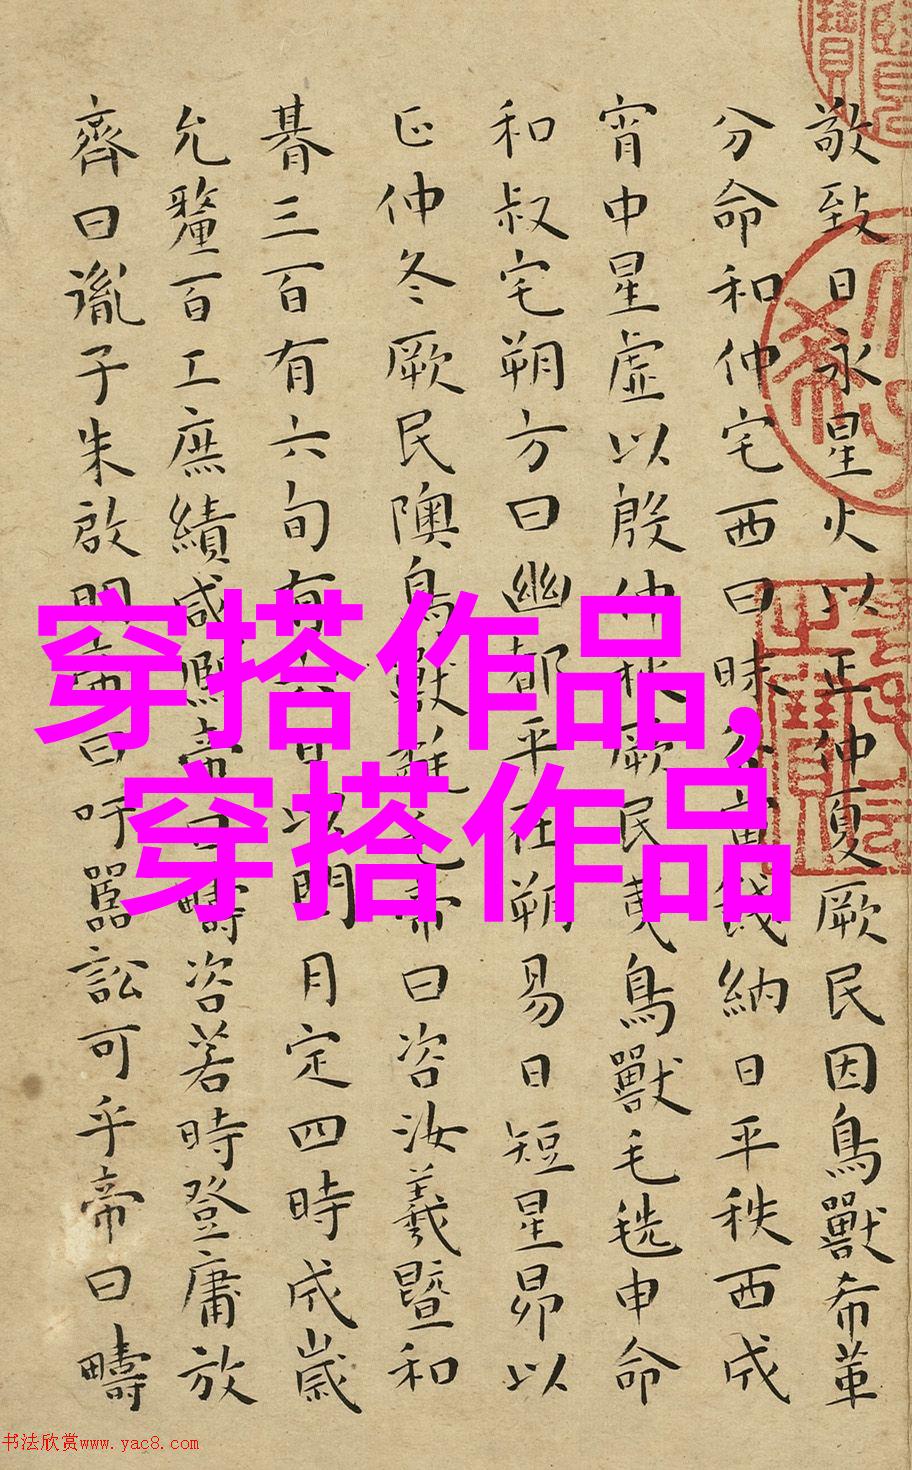 敬致日永星火以正仲夏厥民因鳥獸希革
分命和仲宅西曰昧谷寅餞納日平秩西成
宵中星虛以殷仲秋厥民夷鳥獸毛毨申命
和叔宅朔方曰幽都平在朔易日短星昴以
正仲冬厥民隩鳥獸氄毛帝曰咨汝羲暨和
朞三百有六旬有六日以閏月定四時成歲
允釐百工庶績咸熙帝曰疇咨若時登庸放
齊曰胤子朱啟明帝曰吁嚚訟可乎帝曰疇
穿搭作品,
穿搭作品
书法欣赏www.yac8.com